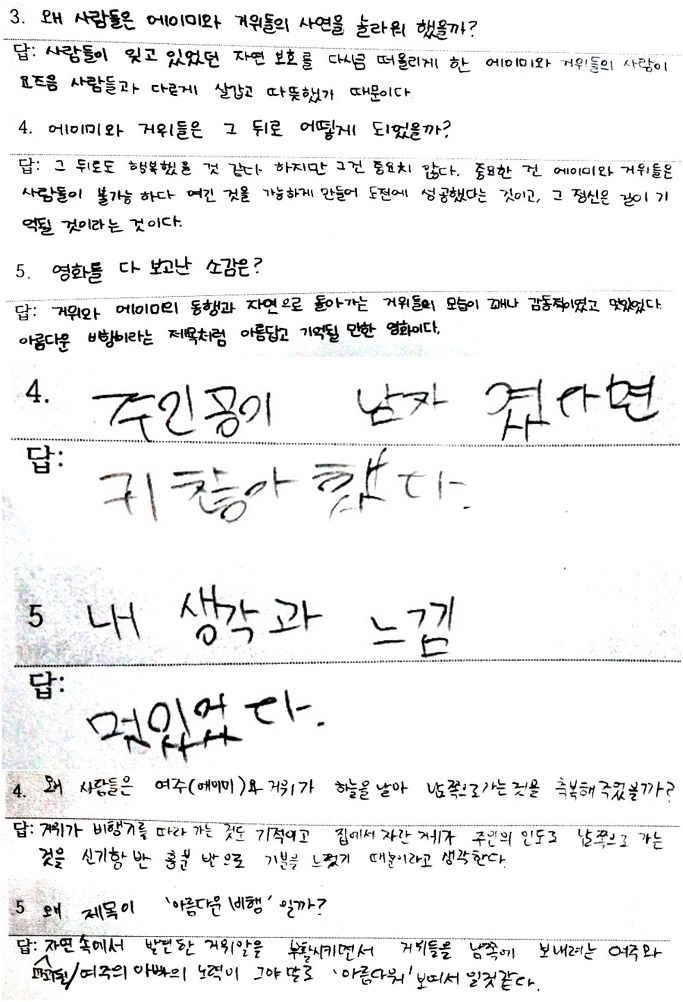 3. 왜 사람들은 에이미와 거위들의 사연을 놀라워 했을까?
답: 사람들이 잊고 있었던 자연 보호를 다시금 떠올리게 한 에이미와 거위들의 사랑이
요즈음 사람들과 다르게 살갑고 따뜻했기 때문이다
4. 에이미와 거위들은 그 뒤로 어떻게 되었을까?
답: 그 뒤로도 행복했을 것 같다 하지만 그건 중요치 않다. 중요한 건 에이미와 거위들은
사람들이 불가능 하다 여긴 것을 가능하게 만들어 도전에 성공했다는 것이고, 그 정신은 길이 기
억될 것이라는 것이다.
5. 영화를 다 보고난 소감은?
답: 거위와 에이미의 동행과 자연으로 돌아가는 거위들의 모습이 꽤나 감동적이었고 멋있었다.
아름다운 비행이라는 제목처럼 아름답고 기억될 만한 영화이다.
4. 주인공이 남자 였다면
답: 귀찮아 했다.
5 내 생각과 느낌
답: 멋있었다.
4. 왜 사람들은 여주(에이미)와 거위가 하늘을 날아 남쪽으로가는것을 축복해 주었을까?
답: 거위가 비행기를 따라 가는 것도 기적이고 집에서 자란 거위가 주인의 인도로 남쪽으로 가는
것을 신기함 반 흥분 반으로 기분을 느꼈기 때문이라고 생각한다.
5 왜 제목이 '아름다운 비행' 일까?
답: 자연 속에서 발견한 거위알을 부활시키면서 거위들을 남쪽에 보내려는 여주와
파괴된/여주의 아빠의 노력이 그야말로 '아름다워' 보여서 일것같다.